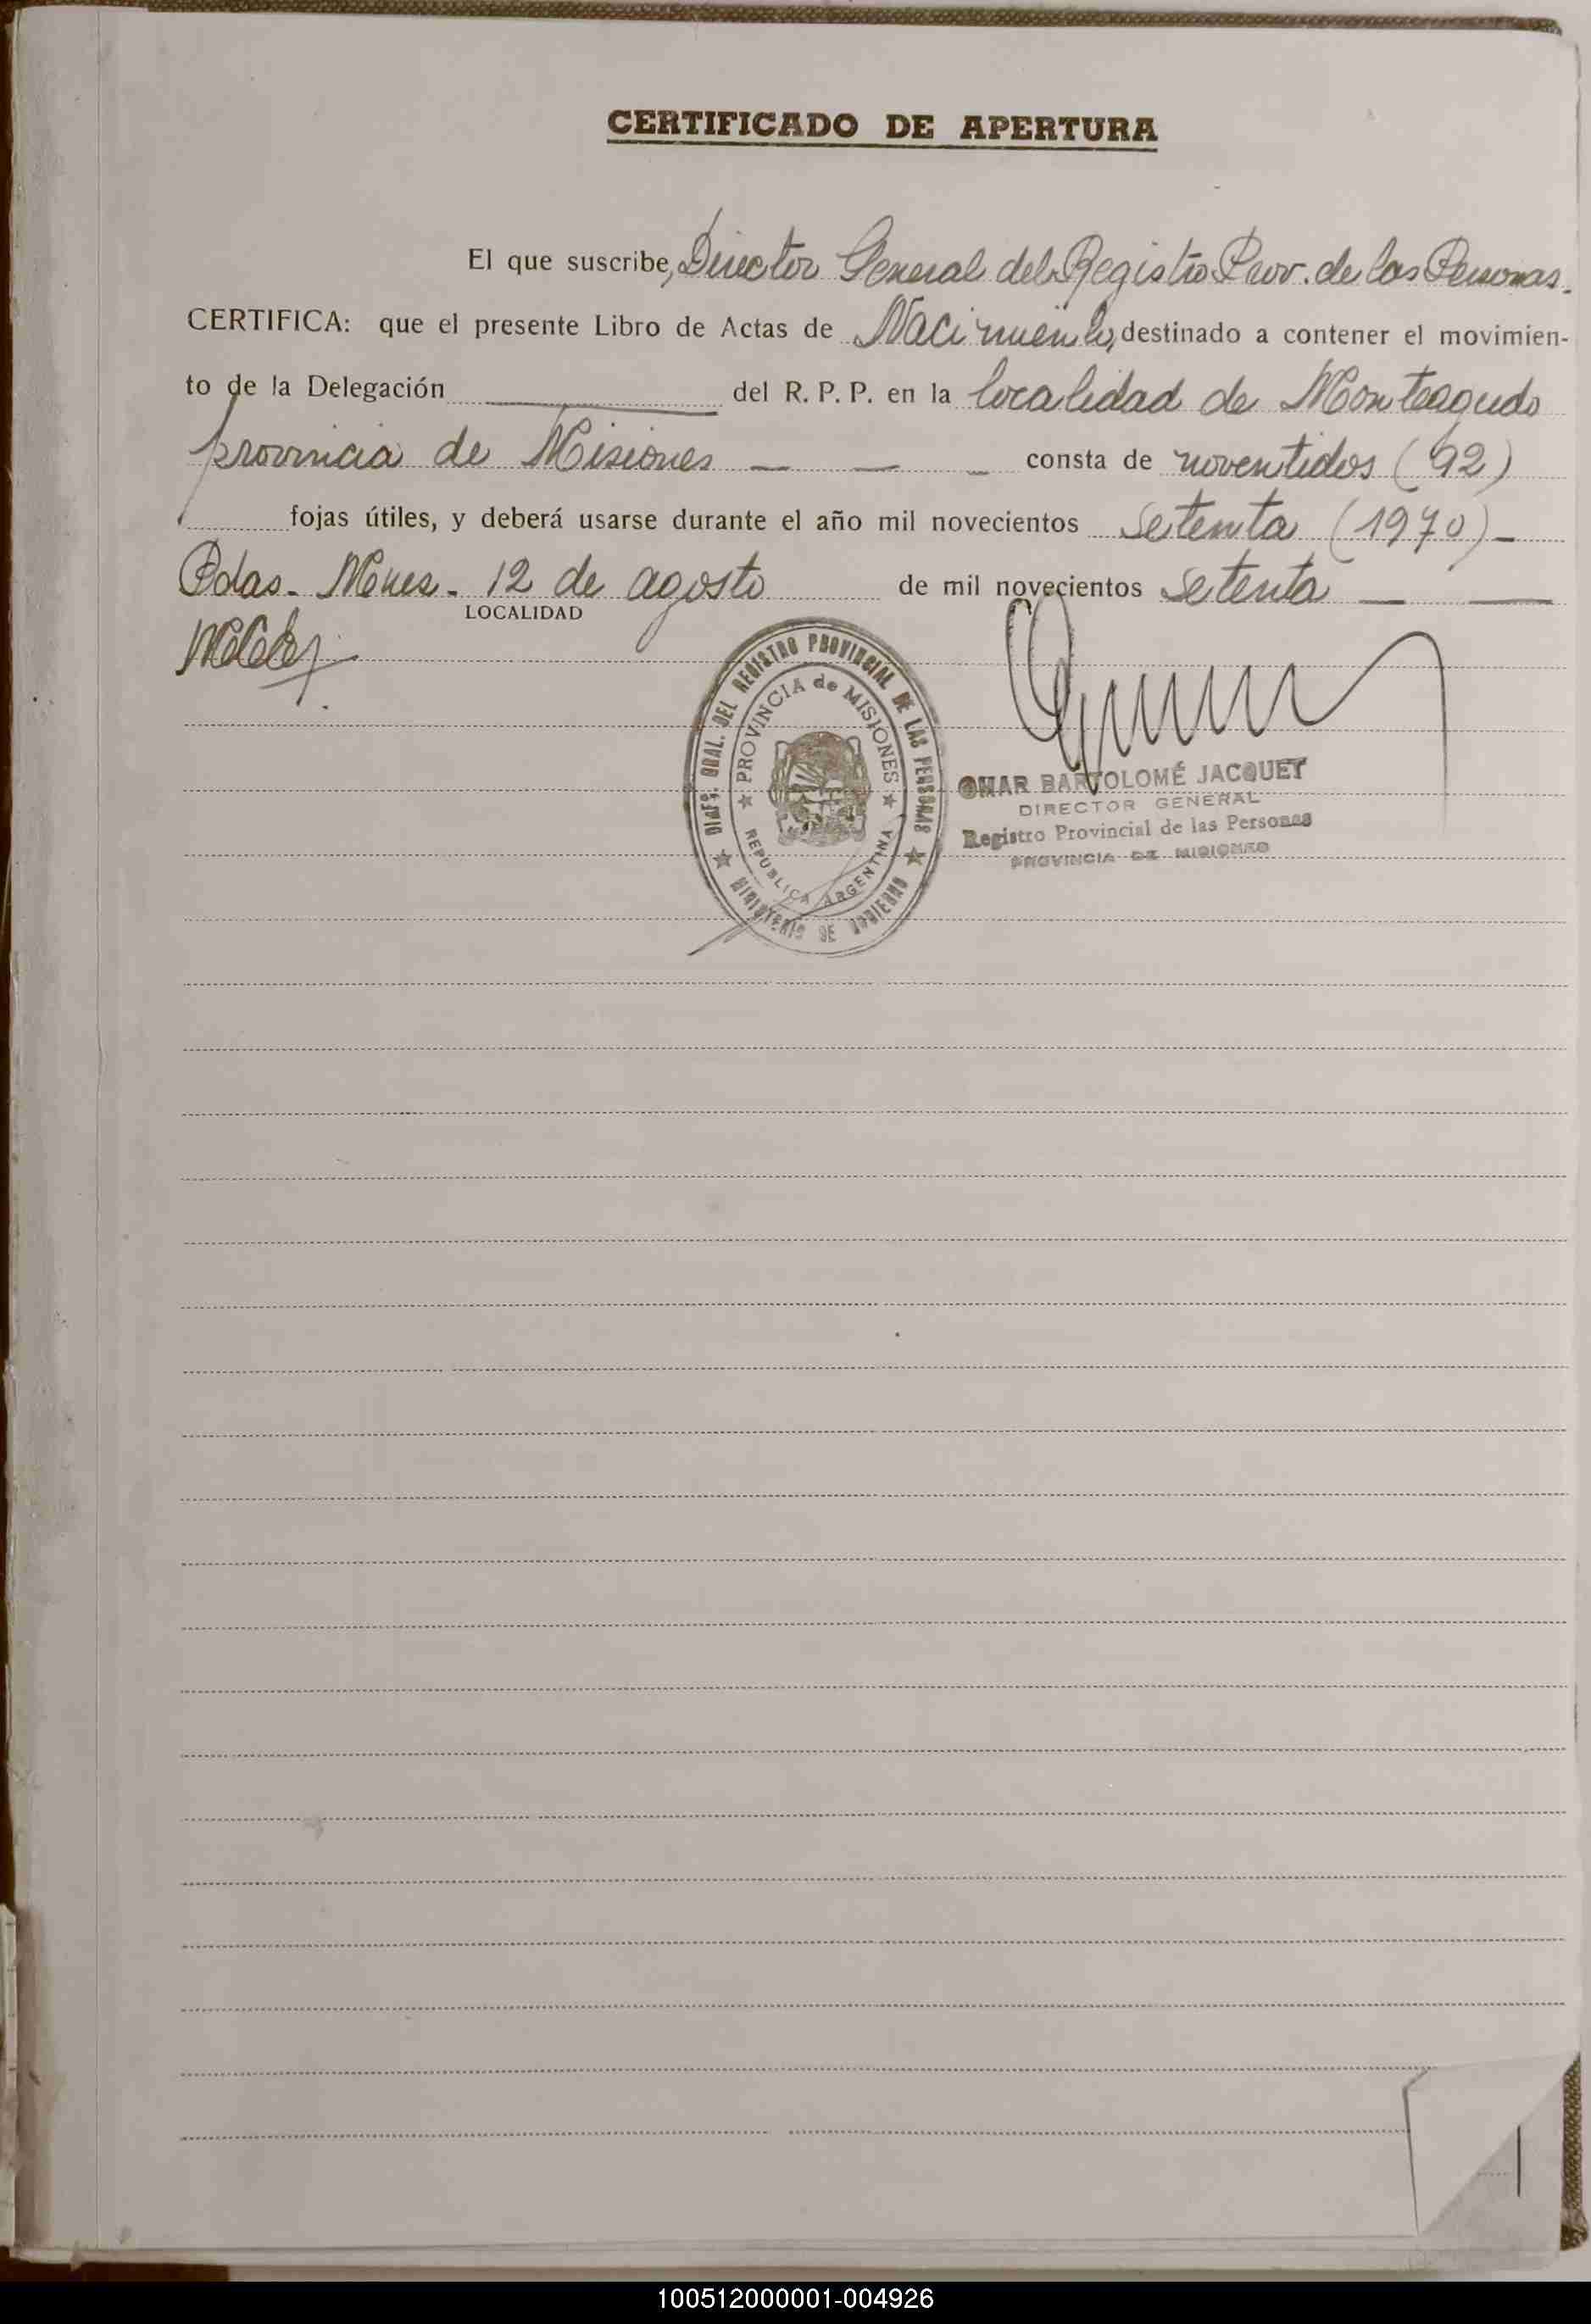 CERTIFICADO DE APERTURA
El que suscribe, Director General del Registro Prov. de las Personas.
CERTIFICA: que el presente Libro de Actas de Nacimiento, destinado a contener el movimien-
to de la Delegación del R. P. P. en la localidad de Monteagudo
provincia de Misiones — — — consta de noventidos (92)
fojas útiles, y deberá usarse durante el año mil novecientos setenta (1970) —
Pdas. Mnes. 12 de agosto de mil novecientos setenta — —
LOCALIDAD
DIREC. GRAL. DEL REGISTRO PROVINCIAL DE LAS PERSONAS
PROVINCIA de MISIONES
REPUBLICA ARGENTINA
MINISTERIO DE GOBIERNO
OMAR BARTOLOMÉ JACQUET
DIRECTOR GENERAL
Registro Provincial de las Personas
PROVINCIA DE MISIONES
100512000001-004926